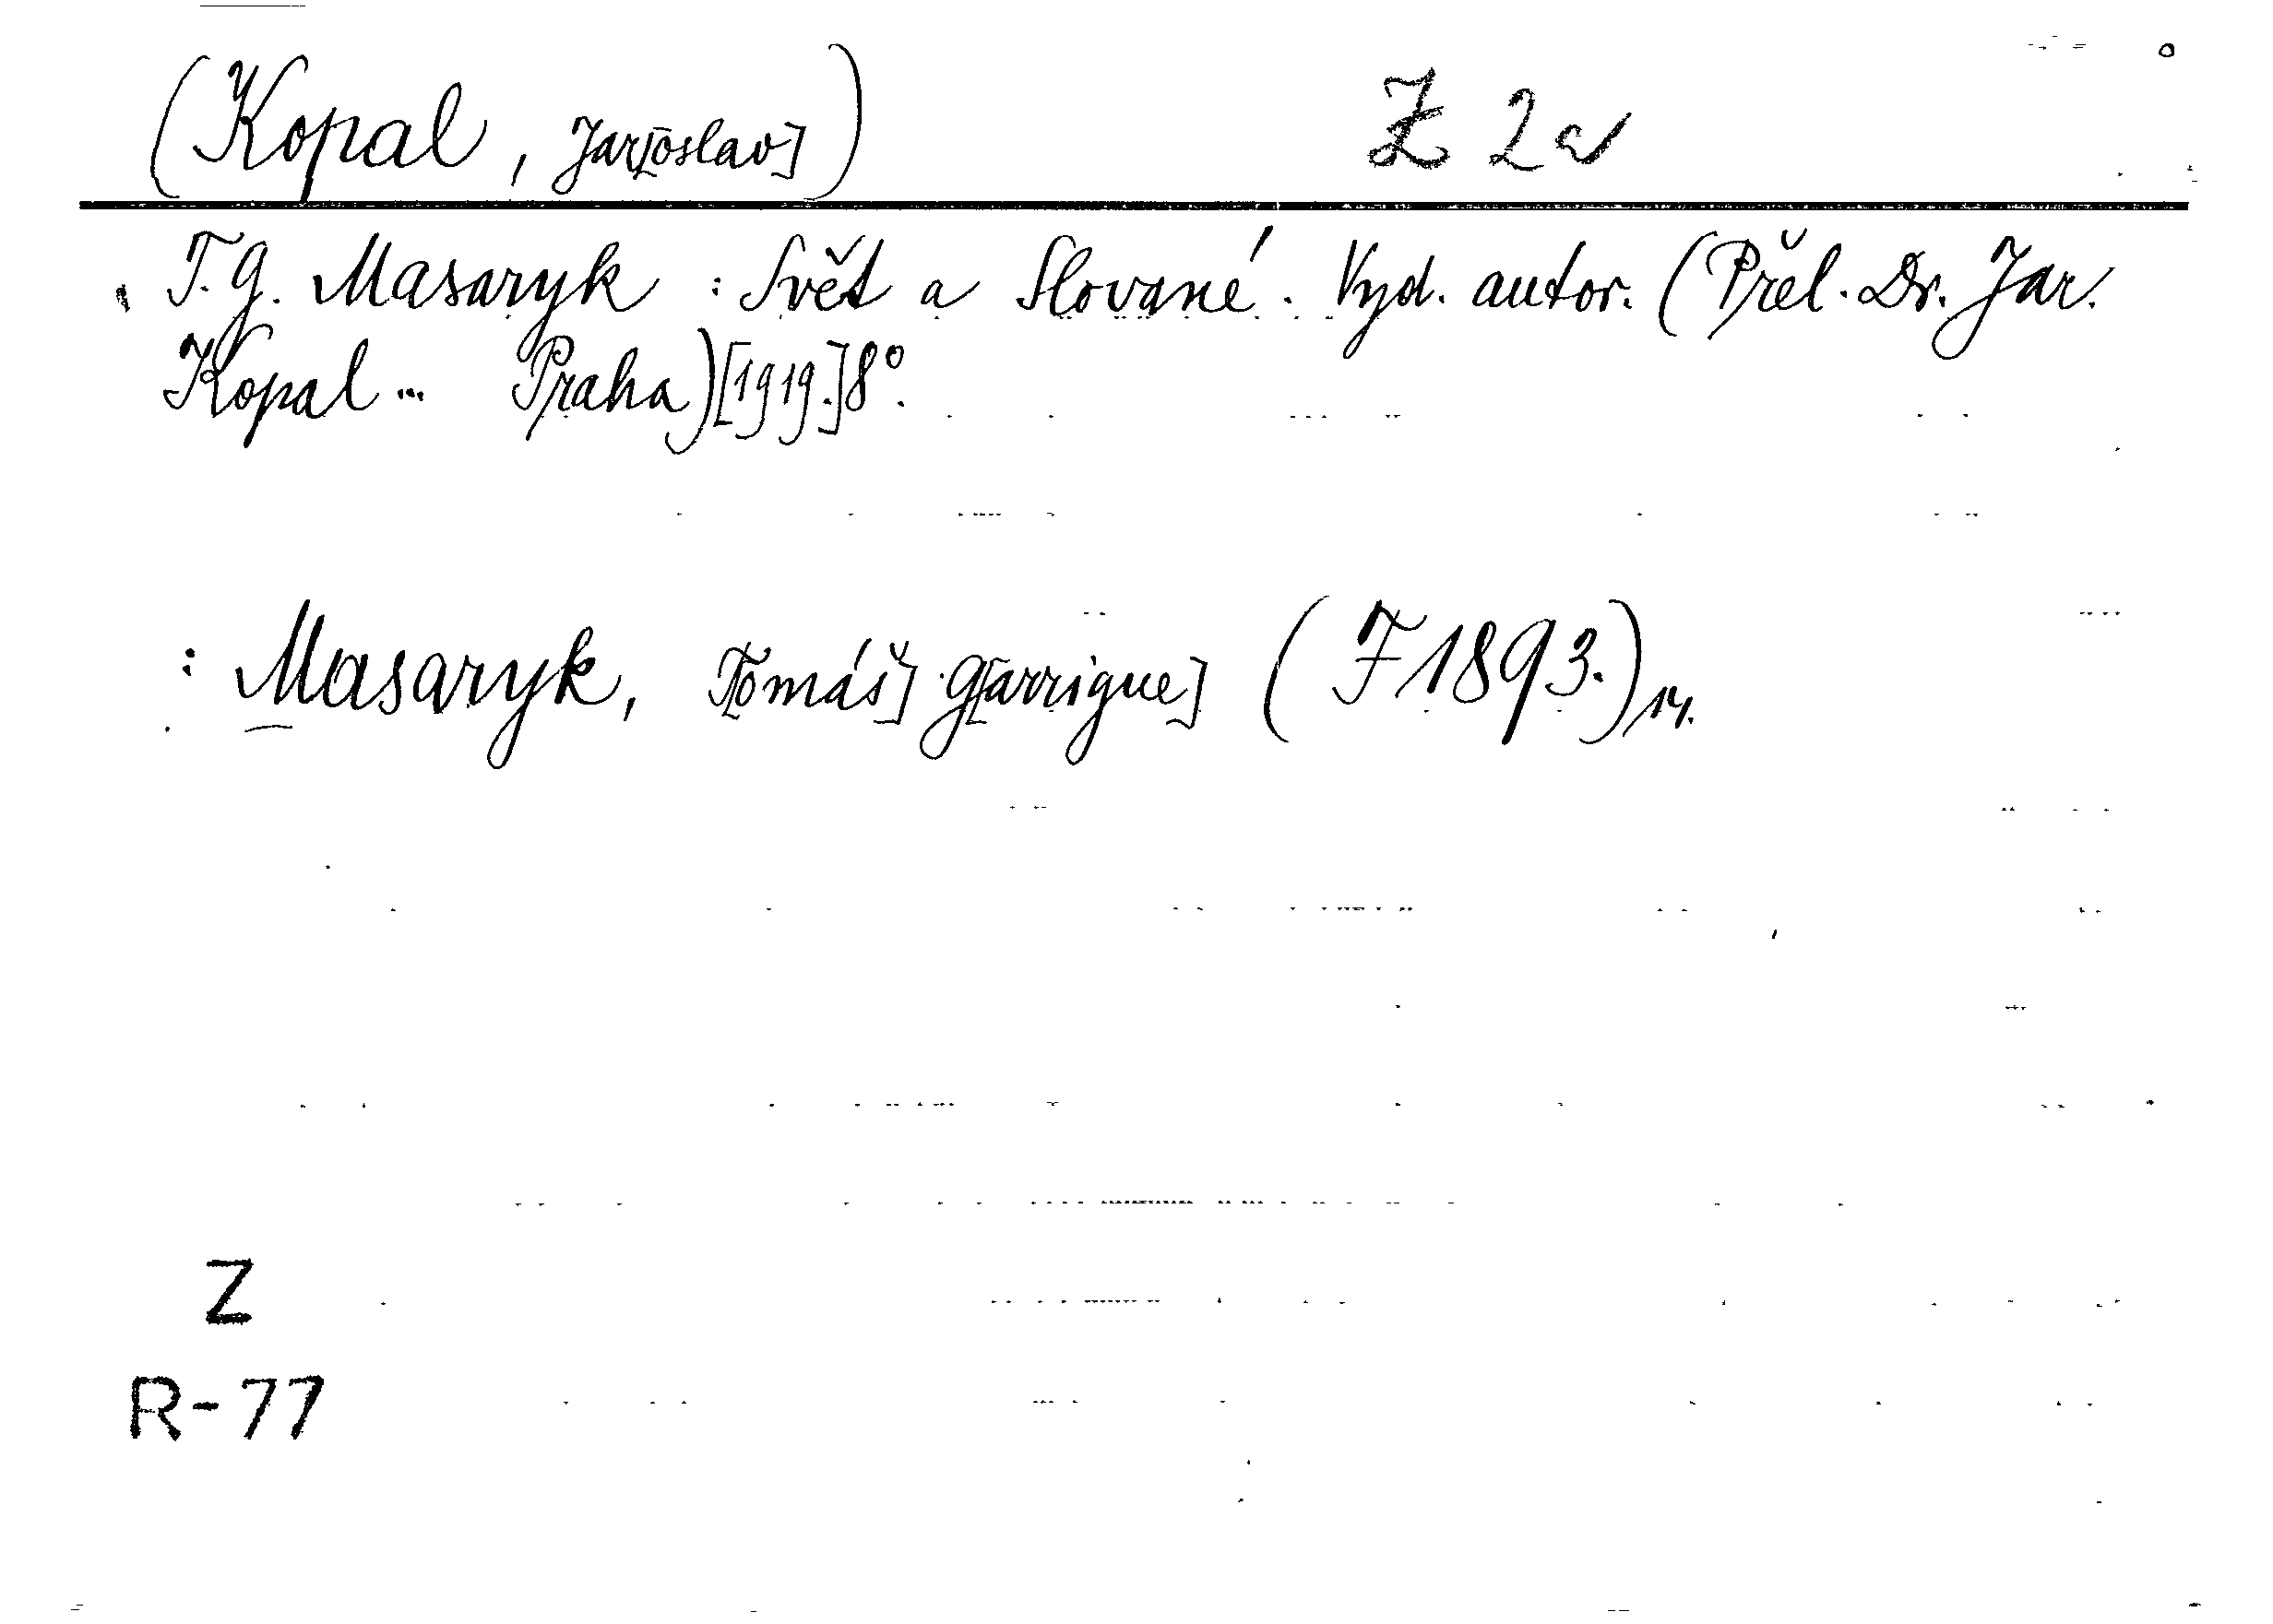 (Kopal, Jar[oslav]) Z 2
T. G. Masaryk : Svět a Slované. Vyd. autor. (Přel. Dr. Jar.
Kopal ... Praha) [1919.] 8°.
: Masaryk, T[omáš] G[arrigue] (F 1893.) 14.
Z
R-77